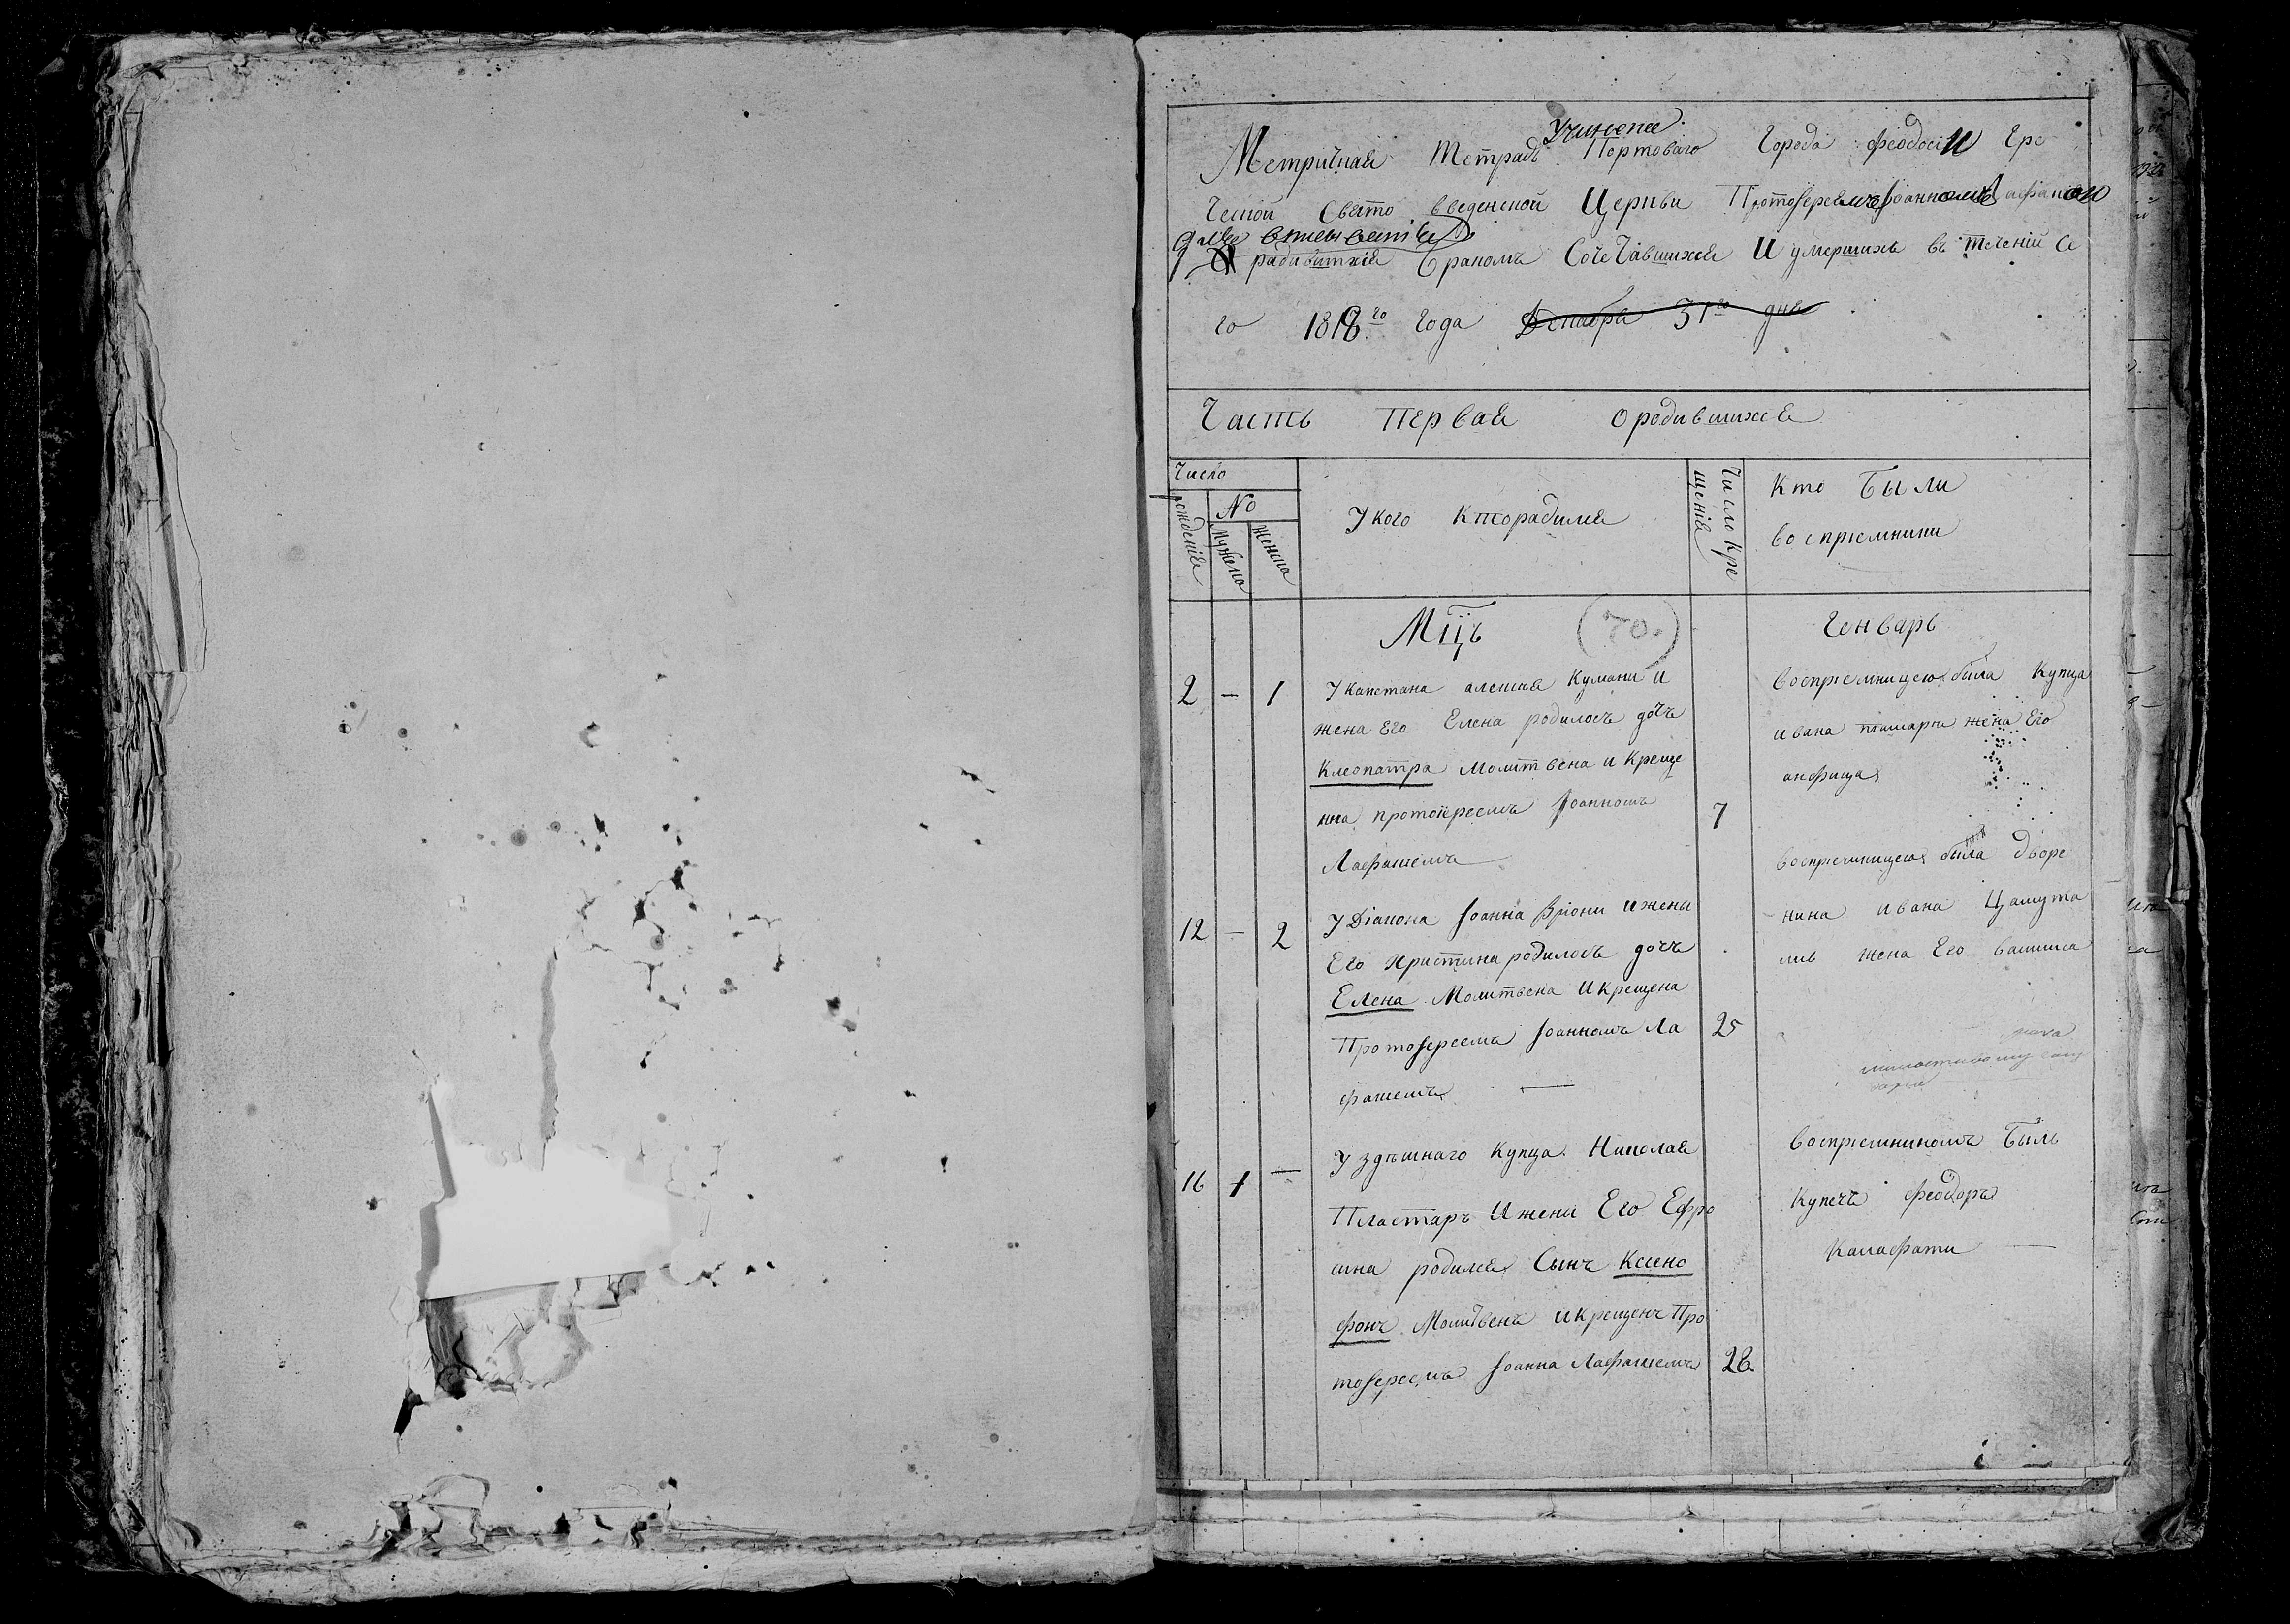 Учинена
Метричная Тетрадь Портоваго Города Феодосіи Гре
ческой Свято введенской Церкви Протоіереемъ Іоанномъ
для вписыванія
родившихся Бракомъ Сочетавшихся И умершихъ въ теченіи се
го 1818го года Декабря 31го дня
Часть Первая О родившихся
Число
рожденія
No
Мужена
Женска
У кого Кто радился
Число Кре
щенія
Кто Были
воспріемники
Мцъ (70.) Генварь
2 — 1
У Капетана алексѣя Кумани и
жена Его Елена родилось дочь
Клеопатра Молитвена и Креще
нна протоіереемъ Іоанномъ
Лафакіемъ
7
воспріемницею была Купца
ивана жена Его
анфица
12 — 2
У Діакона Іоанна Вріони и жены
Его Христина родилось дочь
Елена Молитвена И крещена
Протоіереемъ Іоанномъ Ла
факіемъ —
25
воспріемницею была дворе
нина ивана Цамута
ли жена Его василиса
милостивому
16 1 —
У здѣшнаго Купца Николая
Пластаръ И жени Его Ефро
сина родился Сынъ Ксено
фонъ Молитвенъ и крещенъ Про
тоіереемъ Іоанна Лафакіемъ
28
воспріемникомъ Былъ
Купечъ Феодоръ
Калафати —